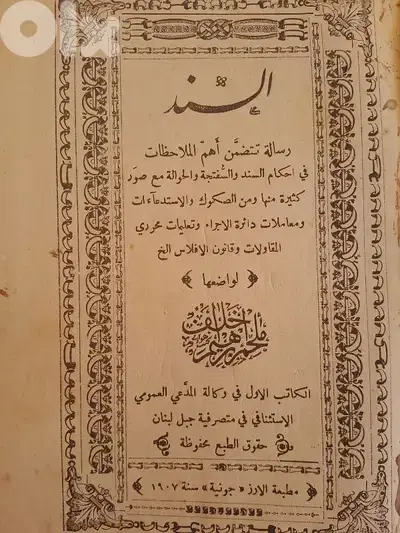 السند
رسالة تتضمن أهم الملاحظات
في احكام السند والسُّفتجة والحوالة مع صوَر
كثيرة منها ومن الصكوك والاستدعاءات
ومعاملات دائرة الاجراء وتعليمات محرري
المقاولات وقانون الإفلاس الخ
لواضعها
ملحم ابرهيم خلف
الكاتب الاول في وكالة المدَّعي العمومي
الاستئنافي في متصرفية جبل لبنان
حقوق الطبع محفوظة
مطبعة الارز «جونية» سنة ١٩٠٧